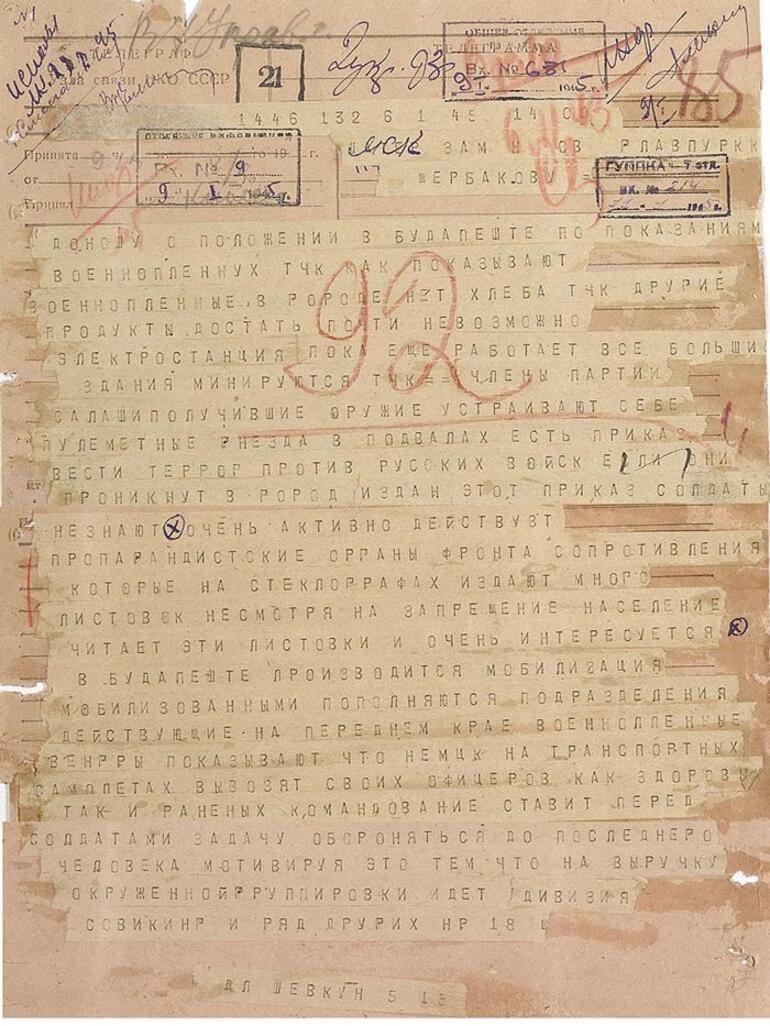 ТЕЛЕГРАФ
ТЕЛЕГРАММА
СССР
21
ОБЩЕЕ ОТДЕЛЕНИЕ
Вх. №
1446 132 6 1 45 14 06
85
Принята
г.
МСК ЗАМ РЛАВПУРКК
от
ВХ. № 9
9 1
ЩЕРБАКОВУ =
ВХ. № 214
Принял
ДОНОШУ О ПОЛОЖЕНИИ В БУДАПЕШТЕ ПО ПОКАЗАНИЯМ
ВОЕННОПЛЕННУХ ТЧК КАК ПОКАЗЫВАЮТ
ВОЕННОПЛЕННЫЕ В РОРОДЕ НЕТ ХЛЕБА ТЧК ДРУРИЕ
ПРОДУКТЫ ДОСТАТЬ ПОЧТИ НЕВОЗМОЖНО
92
ЭЛЕКТРОСТАНЦИЯ ПОКА ЕЩЕ РАБОТАЕТ ВСЕ БОЛЬШИ
ЗДАНИЯ МИНИРУЮТСЯ ТЧК = ЧЛЕНЫ ПАРТИИ
САЛАШИПОЛУЧИВШИЕ ОРУЖИЕ УСТРАИВАЮТ СЕБЕ
ПУЛЕМЕТНЫЕ РНЕЗДА В ПОДВАЛАХ ЕСТЬ ПРИКАЗ
ВЕСТИ ТЕРРОР ПРОТИВ РУССКИХ ВОЙСК ЕСЛИ ОНИ
ПРОНИКНУТ В РОРОД ИЗДАН ЭТОТ ПРИКАЗ СОЛДАТЫ
НЕЗНАЮТ ОЧЕНЬ АКТИВНО ДЕЙСТВУВТ
ПРОПАРАНДИСТСКИЕ ОРГАНЫ ФРОНТА СОПРОТИВЛЕНИЯ
КОТОРЫЕ НА СТЕКЛОРРАФАХ ИЗДАЮТ МНОГО
ЛИСТОВОК НЕСМОТРЯ НА ЗАПРЕЩЕНИЕ НАСЕЛЕНИЕ
ЧИТАЕТ ЭТИ ЛИСТОВКИ И ОЧЕНЬ ИНТЕРЕСУЕТСЯ
В БУДАПЕШТЕ ПРОИЗВОДИТСЯ МОБИЛИЗАЦИЯ
МОБИЛИЗОВАННЫМИ ПОПОЛНЯЮТСЯ ПОДРАЗДЕЛЕНИЯ
ДЕЙСТВУЮЩИЕ НА ПЕРЕДНЕМ КРАЕ ВОЕННОЛЛЕННЫЕ
ВЕНРРЫ ПОКАЗЫВАЮТ ЧТО НЕМЦК НА ТРАНСПОРТНЫХ
САМОЛЕТАХ ВЫВОЗЯТ СВОИХ ОФИЦЕРОВ КАК ЗДОРОВЫ
ТАК И РАНЕНЫХ КОМАНДОВАНИЕ СТАВИТ ПЕРЕД
СОЛДАТАМИ ЗАДАЧУ ОБОРОНЯТЬСЯ ДО ПОСЛЕДНЕРО
ЧЕЛОВЕКА МОТИВИРУЯ ЭТО ТЕМ ЧТО НА ВЫРУЧКУ
ОКРУЖЕННОЙРРУППИРОВКИ ИДЕТ ДИВИЗИЯ
ССВИКИНР И РЯД ДРУРИХ НР 18
ДЛ ШЕВКУН 5 15